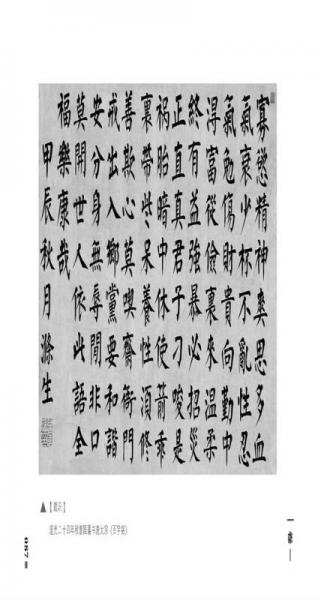 寡慾精神爽思多血
氣衰少杯不亂性忍
氣勉傷財貴向勤中
得富從儉裏來溫柔
終有益強暴必招災
正直真君子刁唆是
禍胎暗中休使箭乖
裏帶些呆養性須修
善欺心莫喫齋衙門
戒出入鄉黨要和諧
安分身無辱閒非口
莫開世人依此語全
福樂康哉
甲辰秋月滌生
▲【题识】
道光二十四年秋曾国藩书唐太宗《百字铭》
087